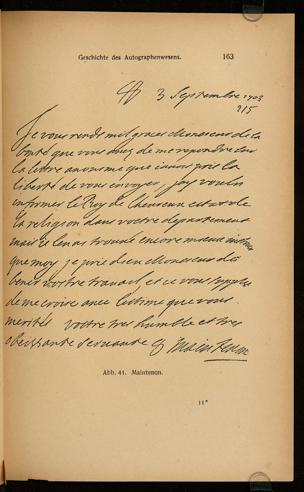 Geschichte des Autographenwesens. 163
3 Septembre 1703
215
Je vous rends mil graces Monsieur de la
bonté que vous avez de me repondre sur
la lettre anonime que j'avois pris la
liberté de vous envoyer j'ay voulu
informer le Roy de
la religion dans vostre departement
mais il en a trouvé encore mieux
que moy je prie dieu Monsieur de
benir vostre travail et je vous supplie
de me croire avec l'estime que vous
merités vostre tres humble et tres
obeissante servante Maintenon
Abb. 41. Maintenon.
11*